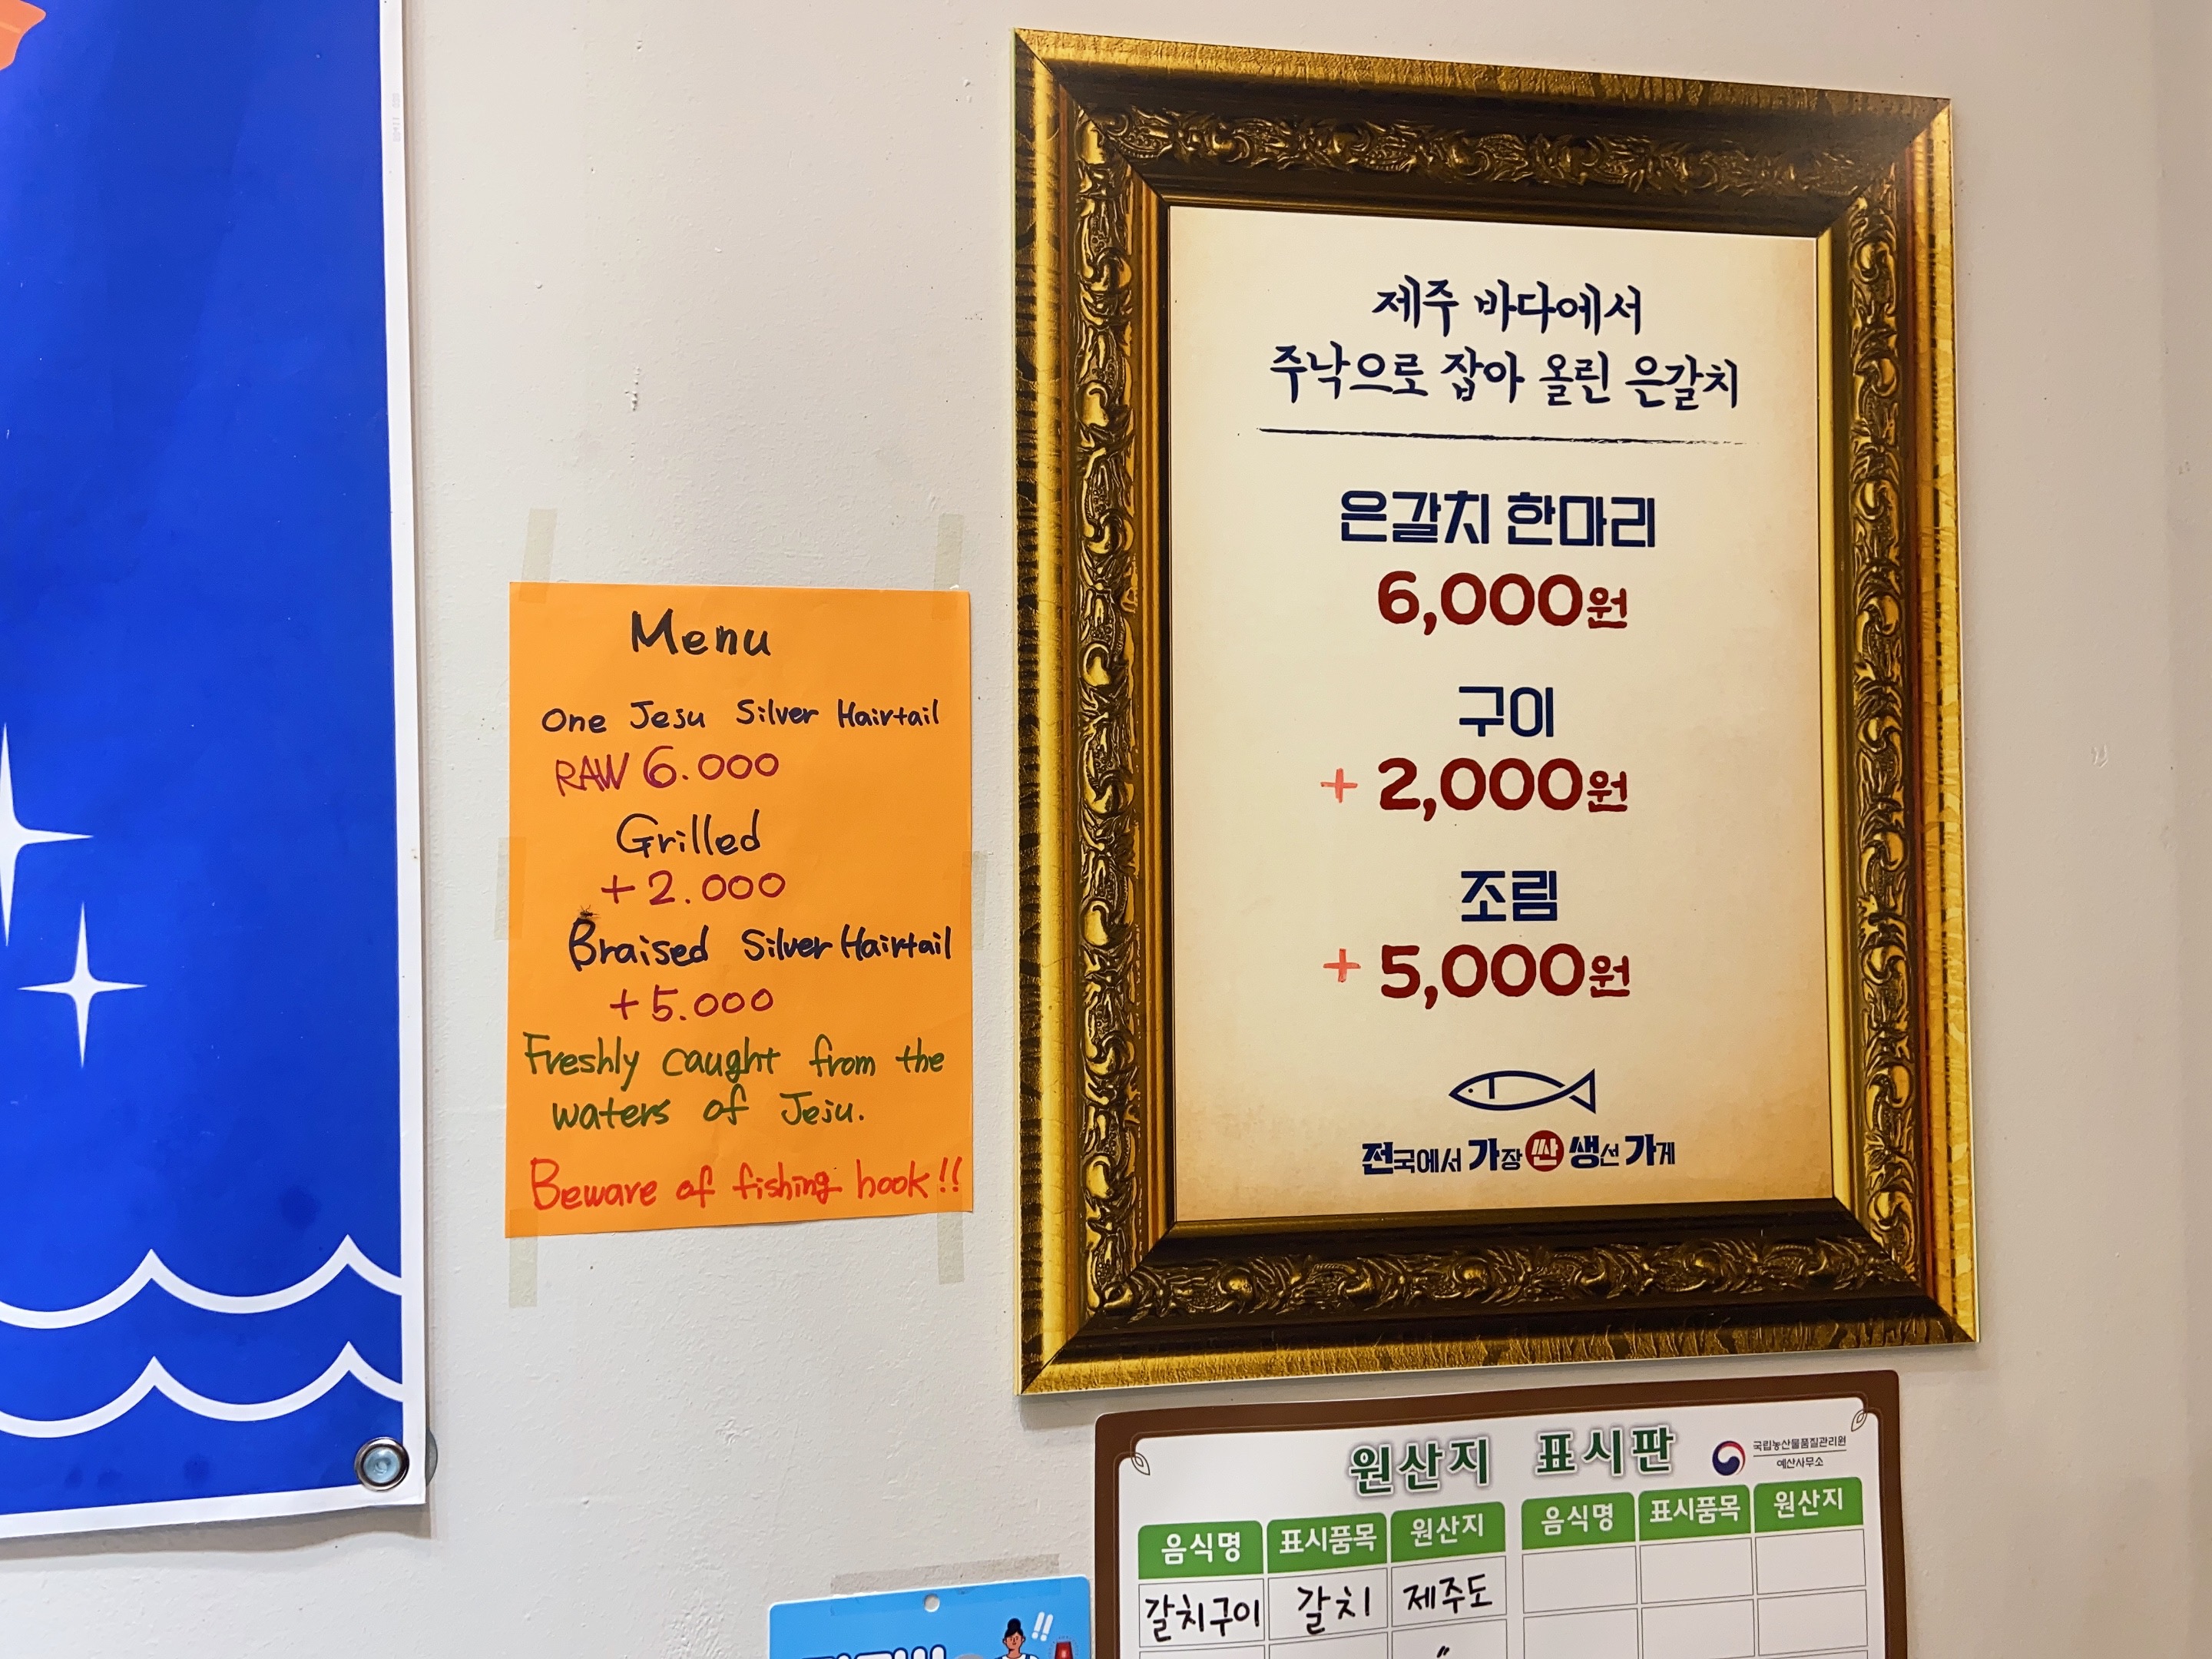 Menu
One Jesu Silver Hairtail
RAW 6.000
Grilled
+2.000
Braised Silver Hairtail
+5.000
Freshly caught from the
waters of Jeju.
Beware of fishing hook!!
제주 바다에서
주낙으로 잡아 올린 은갈치
은갈치 한마리
6,000원
구이
+ 2,000원
조림
+ 5,000원
전국에서 가장 싼 생선 가게
원산지 표시판
국립농산물품질관리원
예산사무소
음식명 표시품목 원산지 음식명 표시품목 원산지
갈치구이 갈치 제주도
〃
!!